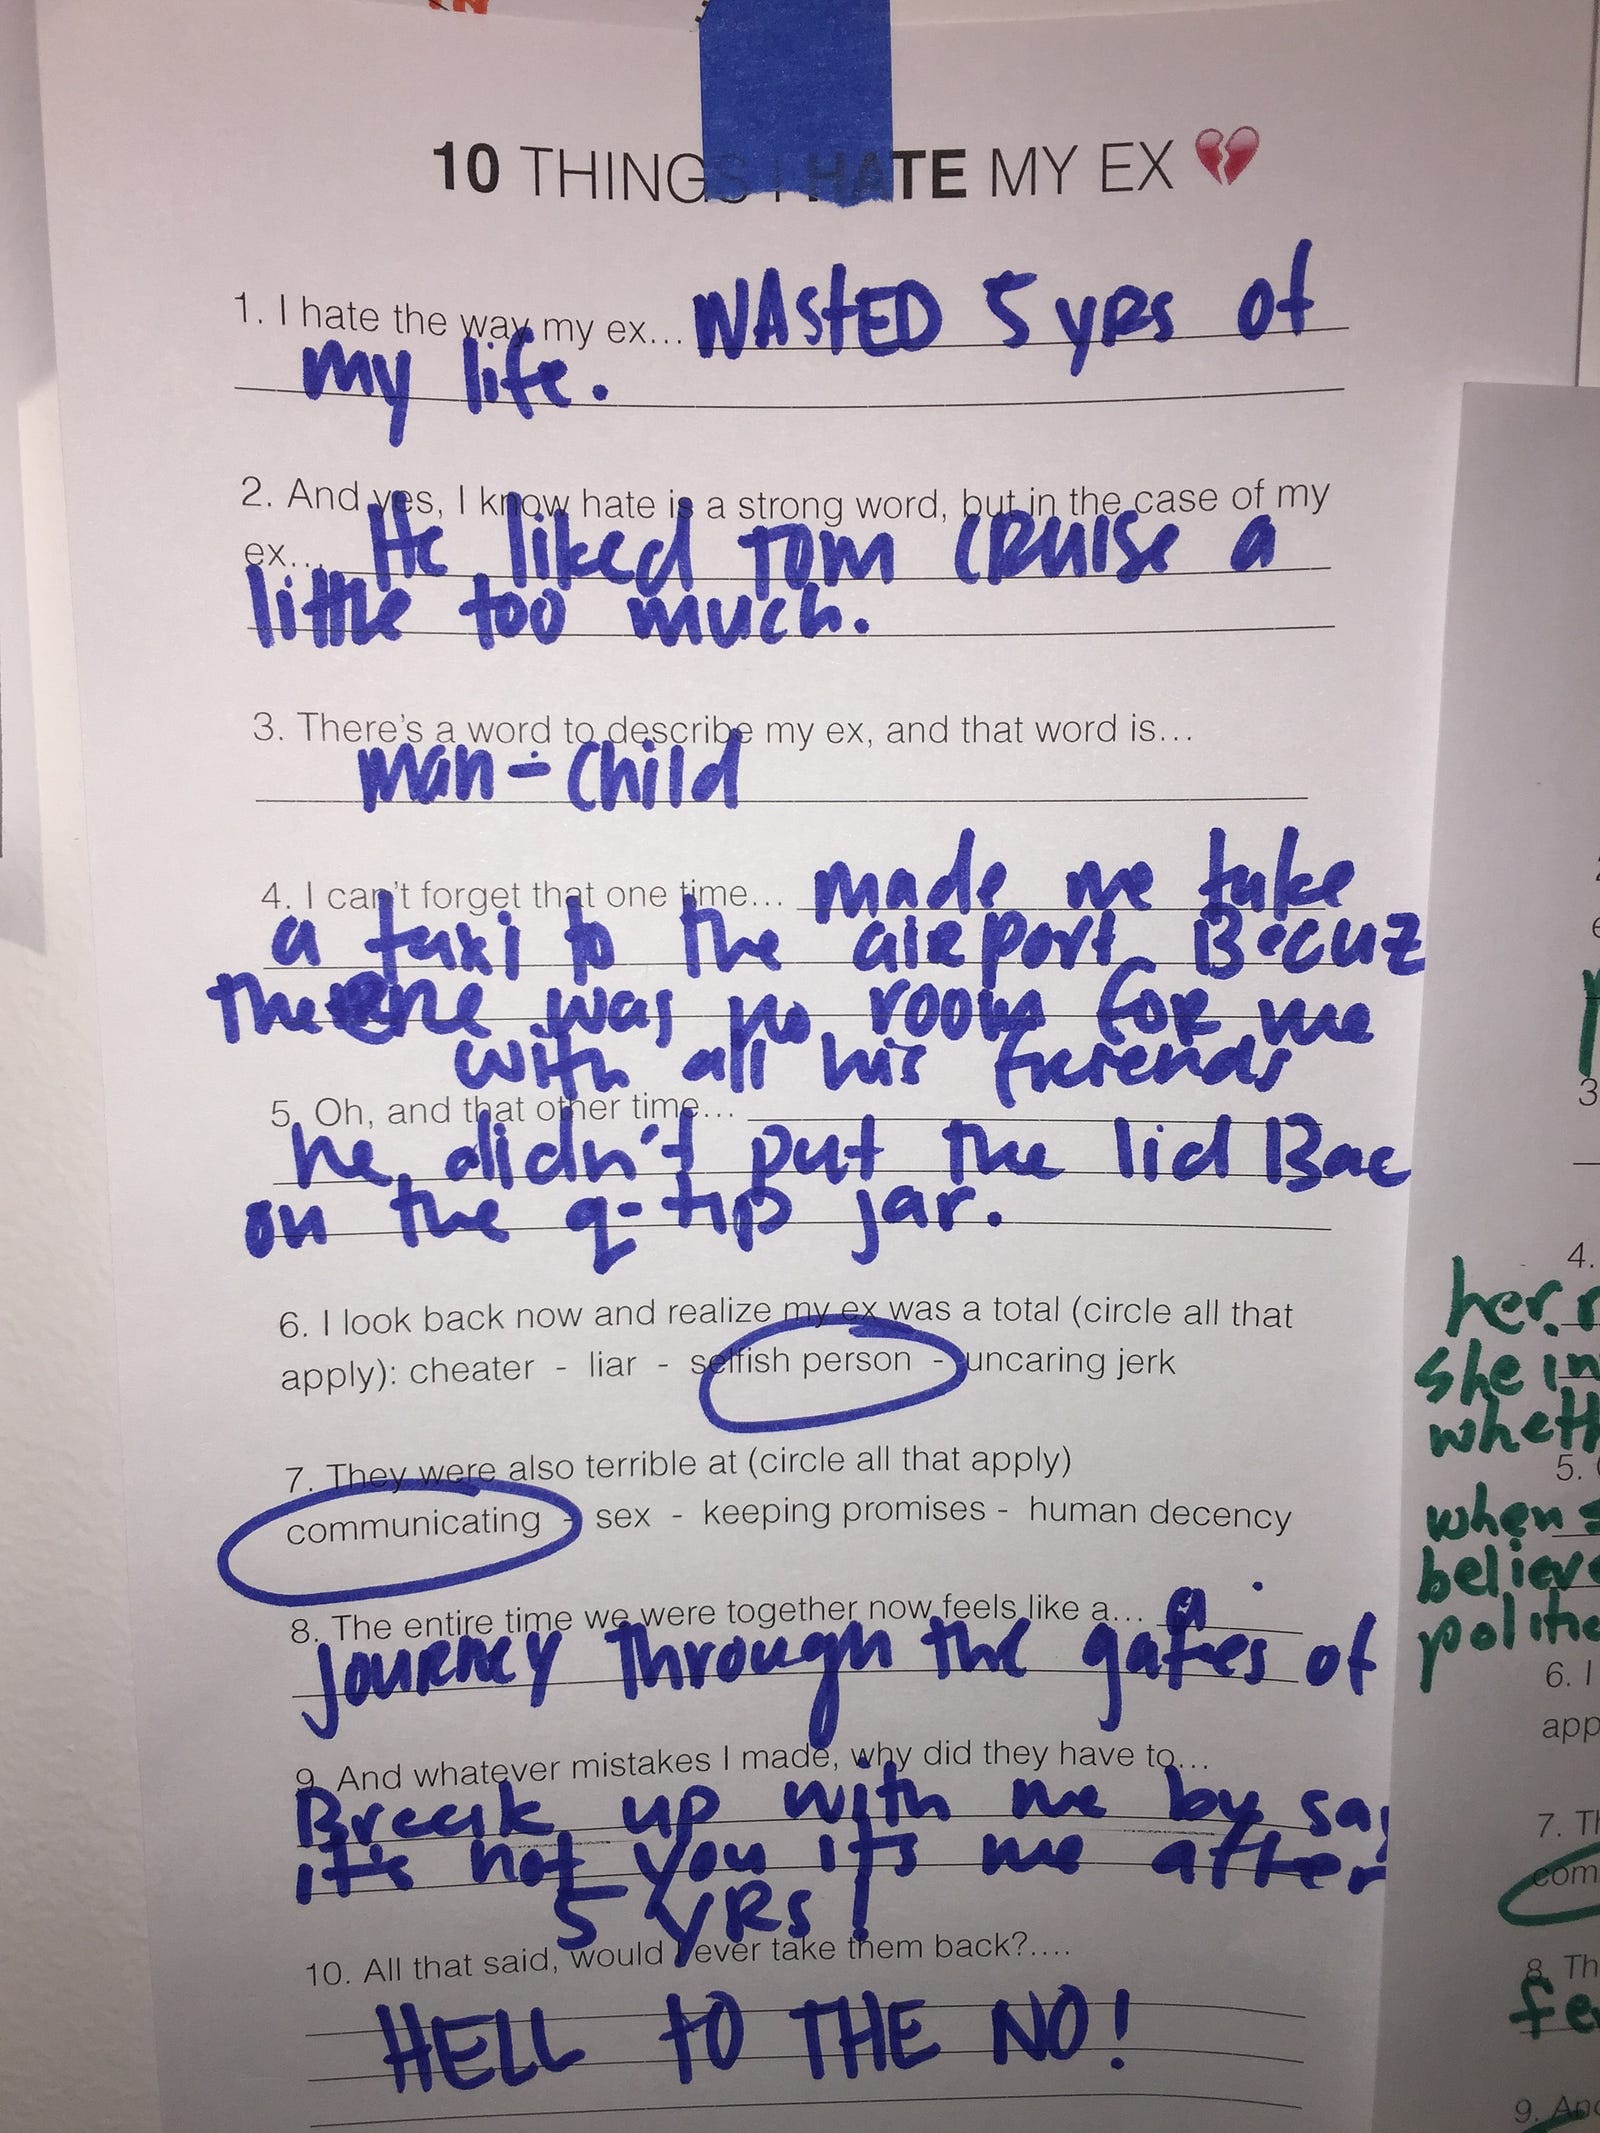 10 THINGS I HATE MY EX
1. I hate the way my ex... WASTED 5 YRS of
my life.
2. And yes, I know hate is a strong word, but in the case of my
ex... He liked TOM CRUISE a
little too much.
3. There's a word to describe my ex, and that word is...
man-child
4. I can't forget that one time... made me take
a taxi to the airport Becuz
there was no room for me
with all his friends
5. Oh, and that other time...
he didn't put the lid Bac
on the q-tip jar.
6. I look back now and realize my ex was a total (circle all that
apply): cheater - liar - selfish person - uncaring jerk
7. They were also terrible at (circle all that apply)
communicating - sex - keeping promises - human decency
8. The entire time we were together now feels like a... a
journey through the gates of
9. And whatever mistakes I made, why did they have to...
Break up with me by say
it's not you its me after
5 YRS!
10. All that said, would I ever take them back?....
HELL TO THE NO!
3
4.
her.
she in
whet
5.
when
believe
politic
6. I
app
7. Th
com
8. Th
fe
9. And